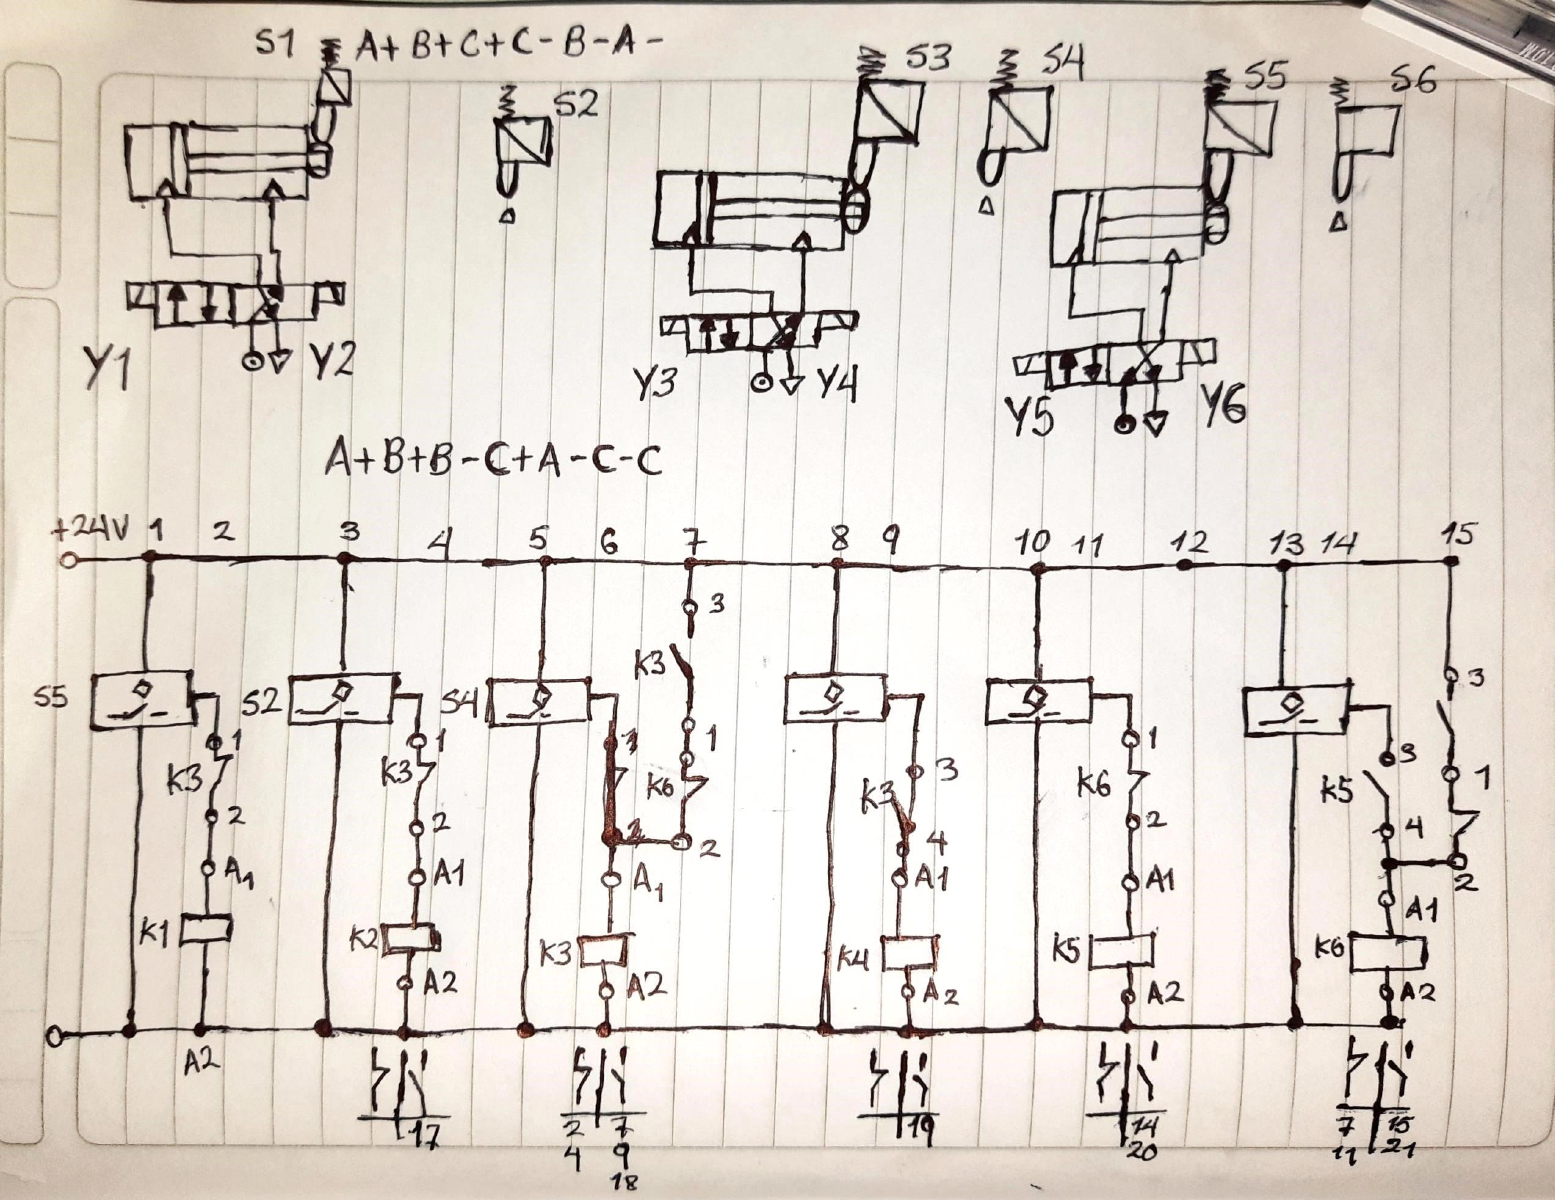 S1 A+B+C+C-B-A-
S2
S3
S4
S5
S6
Y1 Y2
Y3 Y4
Y5 Y6
A+B+B-C+A-C-C
+24V 1 2 3 4 5 6 7 8 9 10 11 12 13 14 15
3
K3
3
S5 S2 S4
1 1 1 1 3
K3 K3 K6 K3 3 K6 K5 1
2 2 2 4 2 4 2
A1 A1 A1 A1 A1 A1
K1 K2 K3 K4 K5 K6
A2 A2 A2 A2 A2
A2
17 2 7 19 14 7 15
4 9 20 11 21
18